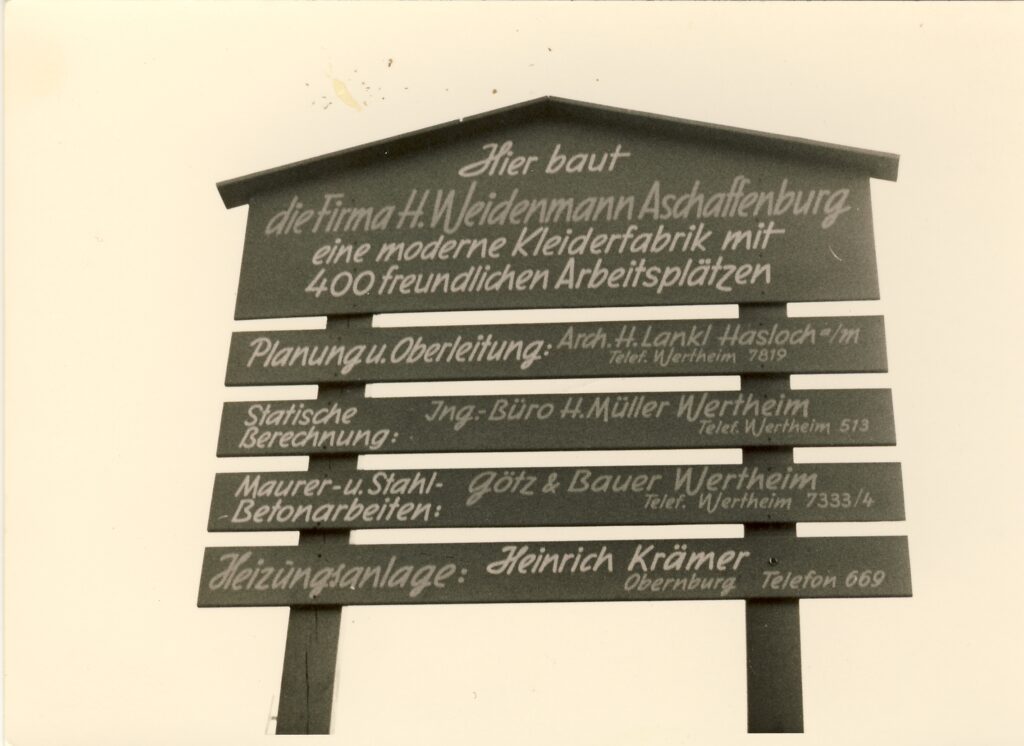 Hier baut
die Firma H. Weidenmann Aschaffenburg
eine moderne Kleiderfabrik mit
400 freundlichen Arbeitsplätzen
Planung u. Oberleitung: Arch. H. Lankl Hasloch a/m
Telef. Wertheim 7819
Statische Ing.-Büro H. Müller Wertheim
Berechnung: Telef. Wertheim 513
Maurer- u. Stahl- Götz & Bauer Wertheim
-Betonarbeiten: Telef. Wertheim 7333/4
Heizungsanlage: Heinrich Krämer
Obernburg Telefon 669